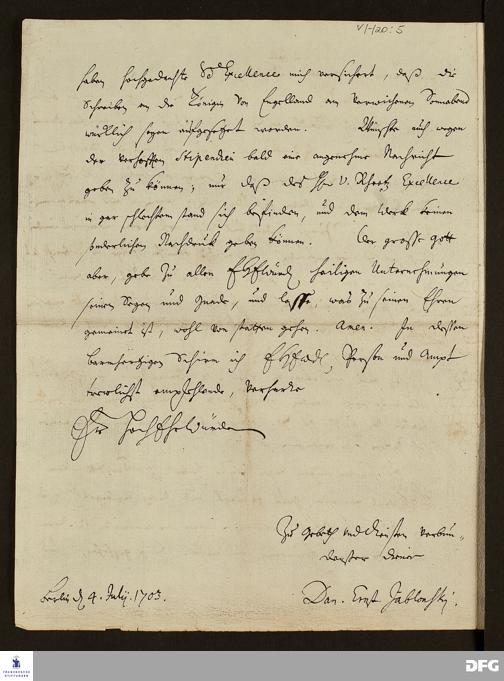 VI-1 20:5
haben hochgedachte Se Excellence mich versichert, daß die
Schreiben an die Königin von Engelland am verwichenen Sonnabend
würklich seyen aufgesetzet worden. Wünsche auch wegen
der verhofften Stipendien bald eine angenehme Nachricht
geben zu können; nur daß des H. v. Excellence
in gar schlechtem stand sich befinden, und dem Werk keinen
sonderlichen Nachdruk geben können. Der grosse Gott
aber, gebe zu allen heiligen Unternehmungen
seinen Segen und Gnade, und lasse, was zu seinen Ehren
gemeinet ist, wohl von statten gehen. Amen. In dessen
barmhertzigen Schirm ich Person und Ampt
treulichst empfehlende, verharre
Ew HochEhrwürden
Zu Gebeth und Diensten verbun-
denster Diener
Berlin d. 4. Julij. 1703.
Dan. Ernst Jablonski.
FRANCKESCHE
STIFTUNGEN
DFG